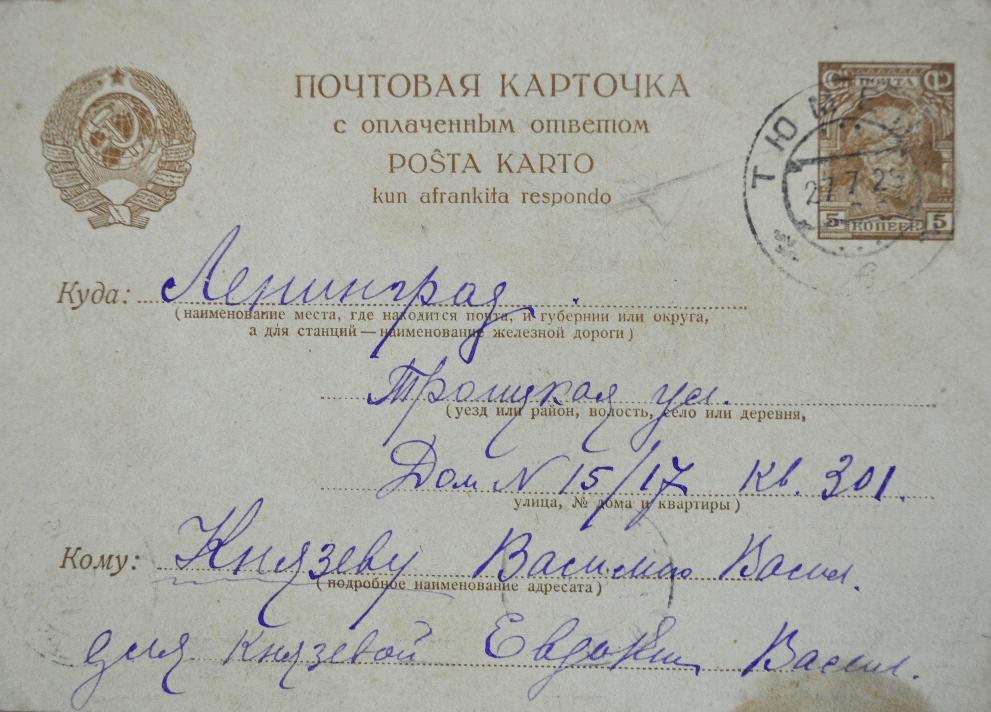 ПОЧТОВАЯ КАРТОЧКА
с оплаченным ответом
POŜTA KARTO
kun afrankita respondo
ПОЧТА
5 КОПЕЕК 5
ТЮМЕ
27 7 2
Куда: Ленинград.
(наименование места, где находится почта, и губернии или округа,
а для станций — наименование железной дороги)
Троицкая ул.
(уезд или район, волость, село или деревня,
Дом N 15/17 кв. 301.
улица, № дома и квартиры)
Кому: Князеву Василию Васил.
(подробное наименование адресата)
для Князевой Евдокии Васил.